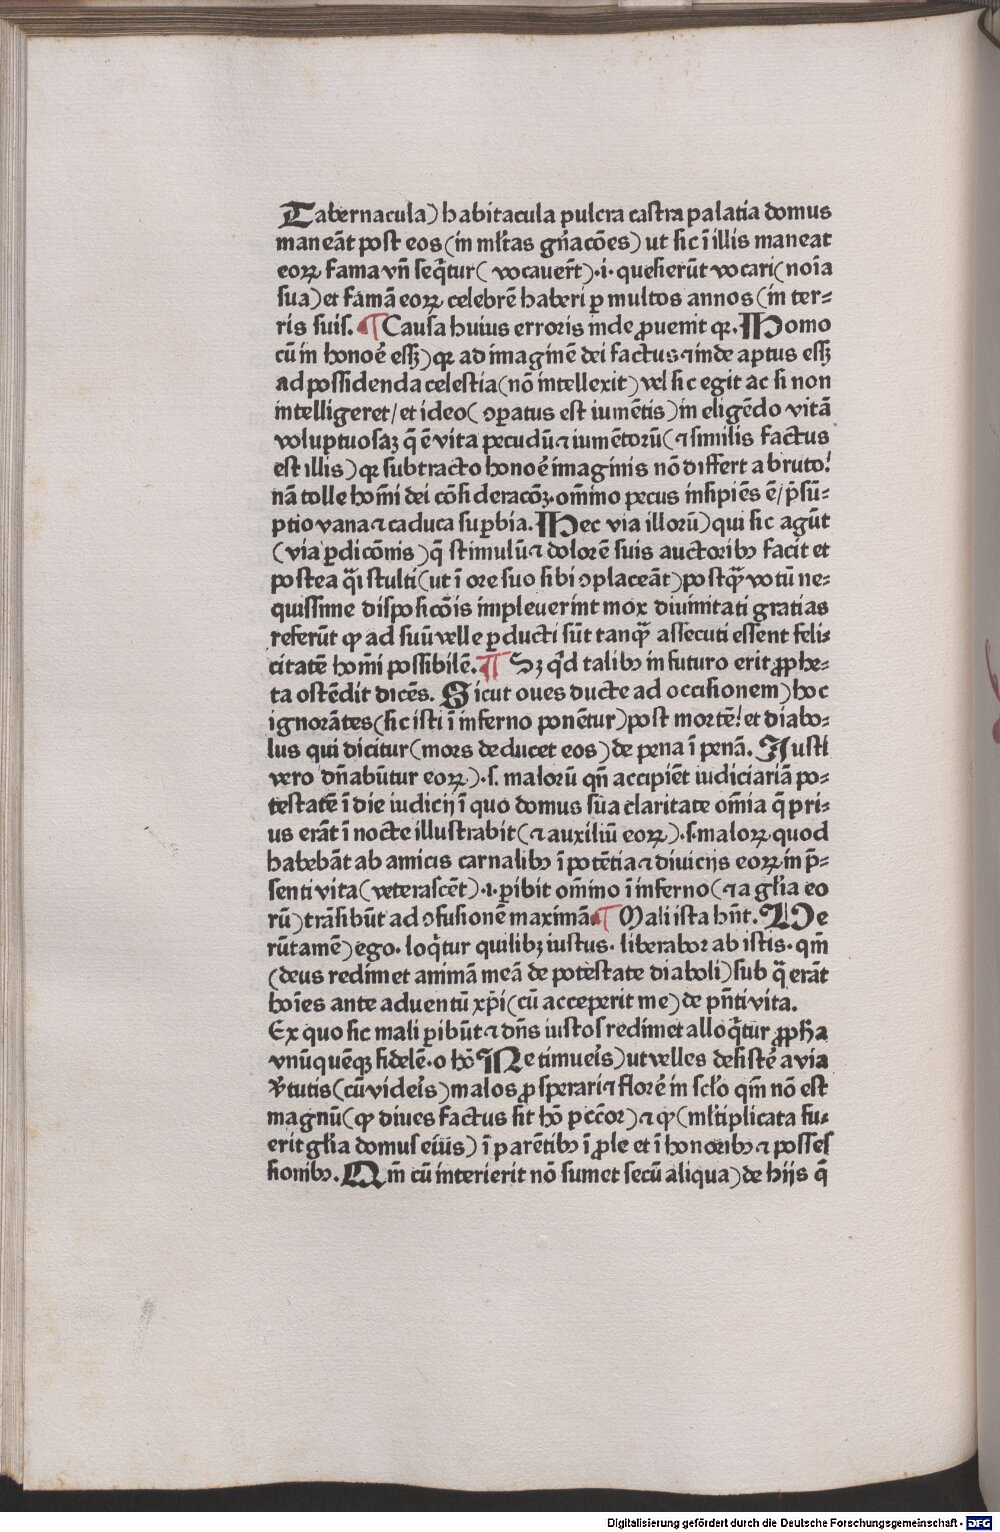 Tabernacula) habitacula pulcra castra palatia domus
maneāt post eos (in mĺtas gn̄acōes) ut sic ī illis maneat
eoꝝ fama vn̄ seq̄tur( vocauer̄t)·i· quesierūt vocari (noīa
sua) et famā eoꝝ celebrē haberi ꝑ multos annos (in ter⸗
ris suis. ¶ Causa huius erroris inde ꝓuenit qꝛ. Homo
cū in honoē eſſꝫ) qꝛ ad imaginē dei factus ⁊ inde aptus eſſꝫ
ad possidenda celestia (nō intellexit) vel sic egit ac si non
intelligeret/ et ideo( ꝯpatus est iumētis) in eligēdo vitā
voluptuosaꝫ q̄ ē vita pecudū ⁊ iumētorū( ⁊ similis factus
est illis) qꝛ subtracto honoē imaginis nō differt a bruto!
nā tolle hoīmi dei cōsideracōꝫ· om̄ino pecus insipiēs ē/ p̄sū⸗
ptio vana ⁊ caduca suꝑbia. Hec via illorū) qui sic agūt
(via ꝑdicōnis) q̄ stimulū ⁊ dolorē suis auctoribꝫ facit et
postea q̄si stulti (ut ī ore suo sibi ꝯplaceāt) postq̄ votū ne⸗
quissime disposicōis impleuerint mox diuinitati gratias
referūt ꝙ ad suū velle ꝑducti sūt tanq̄ assecuti essent feli⸗
citatē hoīmi possibilē. ¶ Sꝫ qͥd talibꝫ in futuro erit ꝓphe⸗
ta ostēdit dicēs. Sicut oues ducte ad occisionem) hoc
ignorātes (sic isti ī inferno ponētur) post mortē! et diabo⸗
lus qui dicitur (mors deducet eos) de pena ī penā. Justi
vero dn̄abūtur eoꝝ)·s. malorū qn̄ accipiēt iudiciariā po⸗
testatē ī die iudicij ī quo domus sūa claritate om̄ia q̄ pri⸗
us erāt ī nocte illustrabit (⁊ auxiliū eoꝝ)·s. maloꝝ quod
habebāt ab amicis carnalibꝫ ī potētia ⁊ diuicijs eoꝝ in p̄⸗
senti vita (veterascēt)·i· ꝑibit om̄ino ī inferno (⁊ a glīa eo
rū) trāsibūt ad ꝯfusionē maximā. ¶ Mali ista hn̄t. Ve
rūtamē) ego· loq̄tur quilibꝫ iustus· liberabor ab istis· qm̄
(deus redimet animā meā de potestate diaboli) sub q̄ erāt
hoīes ante aduentū xp̄i (cū acceperit me) de pn̄ti vita.
Ex quo sic mali ꝑibūt ⁊ dn̄s iustos redimet alloq̄tur ꝓpħa
vnūquēqꝫ fidelē· o hō Ne timueīs) ut velles desistē a via
v̄tutis (cū videīs) malos ꝓsperari ⁊ florē in sclō qm̄ nō est
magnū (ꝙ diues factus sit hō pcc̄or) ⁊ ꝙ (mĺtiplicata fu⸗
erit glīa domus eiꝰ) ī parētibꝫ ī ꝓle et ī honoribꝫ ⁊ posses
sionibꝫ. Qm̄ cū interierit nō sumet secū aliqua) de hijs q̄
Digitalisierung gefördert durch die Deutsche Forschungsgemeinschaft - DFG